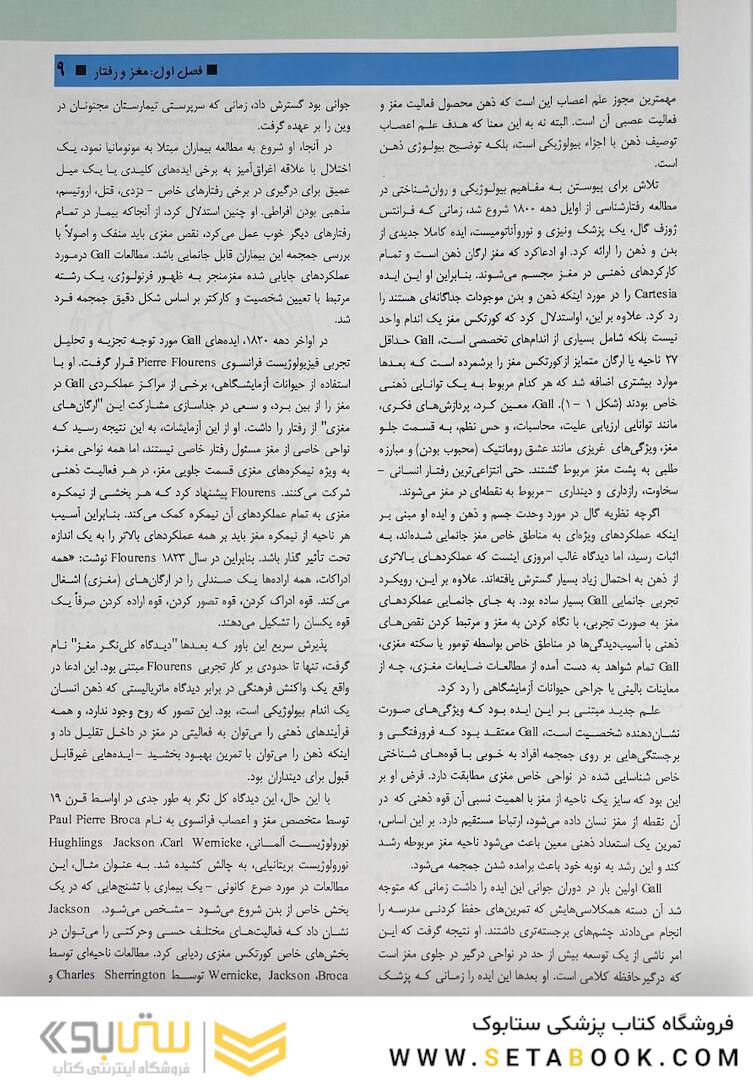 ■ فصل اول: مغز و رفتار ■ ۹
مهمترین مجوز علم اعصاب این است که ذهن محصول فعالیت مغز و
فعالیت عصبی آن است. البته نه به این معنا که هدف علم اعصاب
توصیف ذهن با اجزاء بیولوژیکی است، بلکه توضیح بیولوژی ذهن
است.
تلاش برای پیوستن به مفاهیم بیولوژیکی و روان‌شناختی در
مطالعه رفتارشناسی از اوایل دهه ۱۸۰۰ شروع شد، زمانی که فرانتس
ژوزف گال، یک پزشک ونیزی و نوروآناتومیست، ایده کاملا جدیدی از
بدن و ذهن را ارائه کرد. او ادعاکرد که مغز ارگان ذهن است و تمام
کارکردهای ذهنی در مغز مجسم می‌شوند. بنابراین او این ایده
Cartesia را در مورد اینکه ذهن و بدن موجودات جداگانه‌ای هستند را
رد کرد. علاوه بر این، اواستدلال کرد که کورتکس مغز یک اندام واحد
نیست بلکه شامل بسیاری از اندام‌های تخصصی است، Gall حداقل
۲۷ ناحیه یا ارگان متمایز ازکورتکس مغز را برشمرده است که بعدها
موارد بیشتری اضافه شد که هر کدام مربوط به یک توانایی ذهنی
خاص بودند (شکل ۱ –۱). Gall، معین کرد، پردازش‌های فکری،
مانند توانایی ارزیابی علیت، محاسبات، و حس نظم، به قسمت جلو
مغز، ویژگی‌های غریزی مانند عشق رومانتیک (محبوب بودن) و مبارزه
طلبی به پشت مغز مربوط گشتند. حتی انتزاعی‌ترین رفتار انسانی –
سخاوت، رازداری و دینداری –مربوط به نقطه‌ای در مغز می‌شوند.
اگرچه نظریه گال در مورد وحدت جسم و ذهن و ایده او مبنی بر
اینکه عملکردهای ویژه‌ای به مناطق خاص مغز جانمایی شده‌اند، به
اثبات رسید، اما دیدگاه غالب امروزی اینست که عملکردهای بالاتری
از ذهن به احتمال زیاد بسیار گسترش یافته‌اند. علاوه بر این، رویکرد
تجربی جانمایی Gall بسیار ساده بود. به جای جانمایی عملکردهای
مغز به صورت تجربی، با نگاه کردن به مغز و مرتبط کردن نقص‌های
ذهنی با آسیب‌دیدگی‌ها در مناطق خاص بواسطه تومور یا سکته مغزی،
Gall تمام شواهد به دست آمده از مطالعات ضایعات مغزی، چه از
معاینات بالینی یا جراحی حیوانات آزمایشگاهی را رد کرد.
علم جدید مبتنی بر این ایده بود که ویژگی‌های صورت
نشان‌دهنده شخصیت است، Gall معتقد بود که فرورفتگی و
برجستگی‌هایی بر روی جمجمه افراد به خوبی با قوه‌های شناختی
خاص شناسایی شده در نواحی خاص مغزی مطابقت دارد. فرض او بر
این بود که سایز یک ناحیه از مغز با اهمیت نسبی آن قوه ذهنی که در
آن نقطه از مغز نسان داده می‌شود، ارتباط مستقیم دارد. بر این اساس،
تمرین یک استعداد ذهنی معین باعث می‌شود ناحیه مغز مربوطه رشد
کند و این رشد به نوبه خود باعث برامده شدن جمجمه می‌شود.
Gall اولین بار در دوران جوانی این ایده را داشت زمانی که متوجه
شد آن دسته همکلاسی‌هایش که تمرین‌های حفظ کردنی مدرسه را
انجام می‌دادند چشم‌های برجسته‌تری داشتند. او نتیجه گرفت که این
امر ناشی از یک توسعه بیش از حد در نواحی درگیر در جلوی مغز است
که درگیرحافظه کلامی است. او بعدها این ایده را زمانی که پزشک
جوانی بود گسترش داد، زمانی که سرپرستی تیمارستان مجنونان در
وین را بر عهده گرفت.
در آنجا، او شروع به مطالعه بیماران مبتلا به مونومانیا نمود، یک
اختلال با علاقه اغراق‌آمیز به برخی ایده‌های کلیدی یا یک میل
عمیق برای درگیری در برخی رفتارهای خاص –دزدی، قتل، اروتیسم،
مذهبی بودن افراطی. او چنین استدلال کرد، از آنجاکه بیمار در تمام
رفتارهای دیگر خوب عمل می‌کرد، نقص مغزی باید منفک و اصولاً با
بررسی جمجمه این بیماران قابل جانمایی باشد. مطالعات Gall درمورد
عملکردهای جابابی شده مغزمنجر به ظهور فرنولوژی، یک رشته
مرتبط با تعیین شخصیت و کارکتر بر اساس شکل دقیق جمجمه فرد
شد.
در اواخر دهه ۱۸۲۰، ایده‌های Gall مورد توجه تجزیه و تحلیل
تجربی فیزیولوژیست فرانسوی Pierre Flourens قرار گرفت. او با
استفاده از حیوانات آزمایشگاهی، برخی از مراکز عملکردی Gall در
مغز را از بین برد، و سعی در جداسازی مشارکت این "ارگان‌های
مغزی" از رفتار را داشت. او از این آزمایشات، به این نتیجه رسید که
نواحی خاصی از مغز مسئول رفتار خاصی نیستند، اما همه نواحی مغز،
به ویژه نیمکره‌های مغزی قسمت جلویی مغز، در هر فعالیت ذهنی
شرکت می‌کنند. Flourens پیشنهاد کرد که هر بخشی از نیمکره
مغزی به تمام عملکردهای آن نیمکره کمک می‌کند. بنابراین آسیب
هر ناحیه از نیمکره مغز باید بر همه عملکردهای بالاتر را به یک اندازه
تحت تأثیر گذار باشد. بنابراین در سال ۱۸۲۳ Flourens نوشت: «همه
ادراکات، همه اراده‌ها یک صندلی را در ارگان‌های (مغزی) اشغال
می‌کند. قوه ادراک کردن، قوه تصور کردن، قوه اراده کردن صرفاً یک
قوه یکسان را تشکیل می‌دهند.
پذیرش سریع این باور که بعدها "دیدگاه کلی‌نگر مغز" نام
گرفت، تنها تا حدودی بر کار تجربی Flourens مبتنی بود. این ادعا در
واقع یک واکنش فرهنگی در برابر دیدگاه ماتریالیستی که ذهن انسان
یک اندام بیولوژیکی است، بود. این تصور که روح وجود ندارد، و همه
فرآیندهای ذهنی را می‌توان به فعالیتی در مغز در داخل تقلیل داد و
اینکه ذهن را می‌توان با تمرین بهبود بخشید –ایده‌هایی غیرقابل
قبول برای دینداران بود.
با این حال، این دیدگاه کل نگر به طور جدی در اواسط قرن ۱۹
توسط متخصص مغز و اعصاب فرانسوی به نام Paul Pierre Broca
نورولوژیست آلمانی، Carl Wernicke، Hughlings Jackson
نورولوژیست بریتانیایی، به چالش کشیده شد. به عنوان مثال، این
مطالعات در مورد صرع کانونی –یک بیماری با تشنج‌هایی که در یک
بخش خاص از بدن شروع می‌شود –مشخص می‌شود. Jackson
نشان داد که فعالیت‌های مختلف حسی وحرکتی را می‌توان در
بخش‌های خاص کورتکس مغزی ردیابی کرد. مطالعات ناحیه‌ای توسط
Wernicke, Jackson ،Broca توسط Charles Sherrington و
ستابوک
فروشگاه اینترنتی کتاب
فروشگاه کتاب پزشکی ستابوک
WWW.SETABOOK.COM